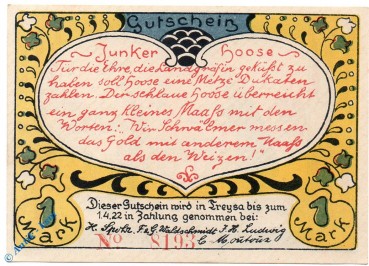 Gutschein
Junker Hoose
Für die Ehre, die Landgräfin geküßt zu
haben soll Hoose eine Metze Dukaten
zahlen. Der schlaue Hoose überreicht
ein ganz kleines Maaß mit den
Worten: "Wir Schwälmer messen
das Gold mit anderem Maaß
als den Weizen!"
Dieser Gutschein wird in Treysa bis zum
1.4.22 in Zahlung genommen bei:
1 Mark
1 Mark
H. Spohr. F. & G. Waldschmidt J. H. Ludwig
No 8193 C. Moutoux